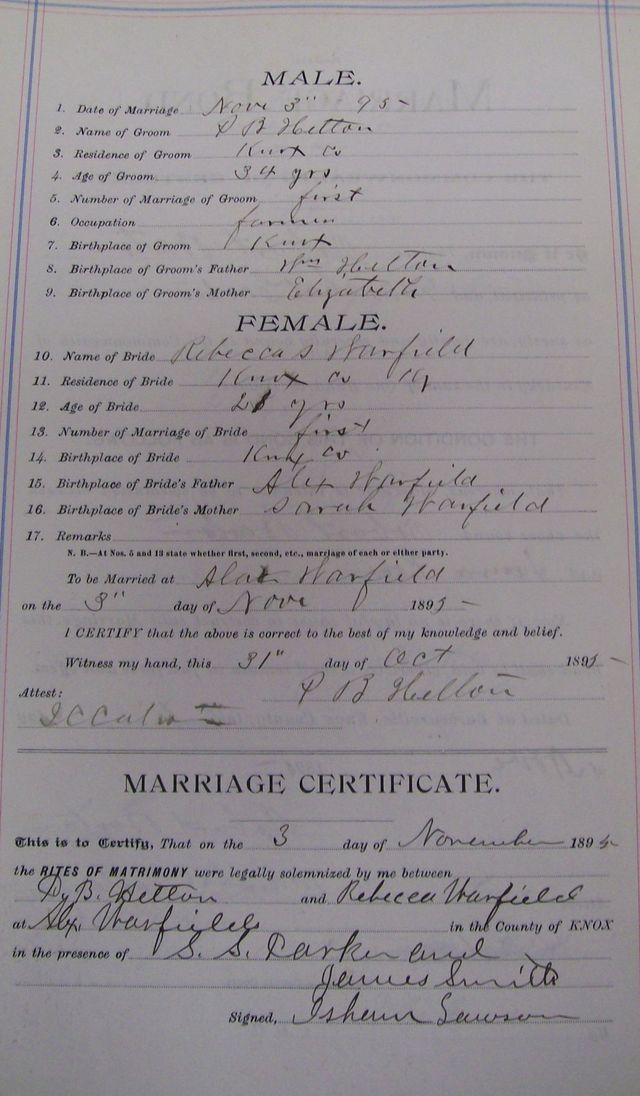 MALE.
1. Date of Marriage Nove 3" 95-
2. Name of Groom P B Helton
3. Residence of Groom Knox Co
4. Age of Groom 34 yrs
5. Number of Marriage of Groom first
6. Occupation farmer
7. Birthplace of Groom Knox
8. Birthplace of Groom's Father Wm Helton
9. Birthplace of Groom's Mother Elizabeth
FEMALE.
10. Name of Bride Rebecca S Warfield
11. Residence of Bride Knox Co Ky
12. Age of Bride 21 yrs
13. Number of Marriage of Bride first
14. Birthplace of Bride Knox Co
15. Birthplace of Bride's Father Alex Warfield
16. Birthplace of Bride's Mother Sarah Warfield
17. Remarks
N. B.—At Nos. 5 and 13 state whether first, second, etc., marriage of each or either party.
To be Married at Warfield
on the 3" day of Nove 1895-
I CERTIFY that the above is correct to the best of my knowledge and belief.
Witness my hand, this 31" day of Oct 1895-
Attest: P B Helton
MARRIAGE CERTIFICATE.
This is to Certify, That on the 3 day of November 1895
the RITES OF MATRIMONY were legally solemnized by me between
B. Helton and Rebecca Warfield
at Alx. Warfields in the County of KNOX
in the presence of S. S. Parker and
James Smith
Signed, Isham Lawson